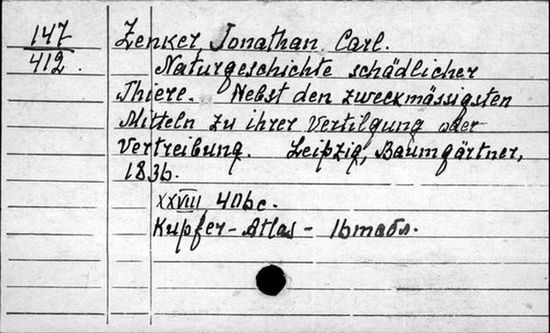 147
412.
Zenker, Jonathan Carl.
Naturgeschichte schädlicher
Thiere. Nebst den zweckmässigsten
Mitteln zu ihrer Vertilgung oder
Vertreibung. Leipzig, Baumgärtner,
1836.
XXVIII, 406с.
Kupfer-Atlas - 16табл.